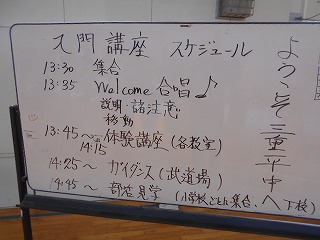 入門講座 スケジュール
13:30 集合
13:35 Welcome 合唱♪
説明・諸注意
移動
13:45~14:15 体験講座(各教室)
14:25~ ガイダンス(武道場)
14:45~ 部活見学(小学校ごとに集合、下校)
ようこそ三重平中へ